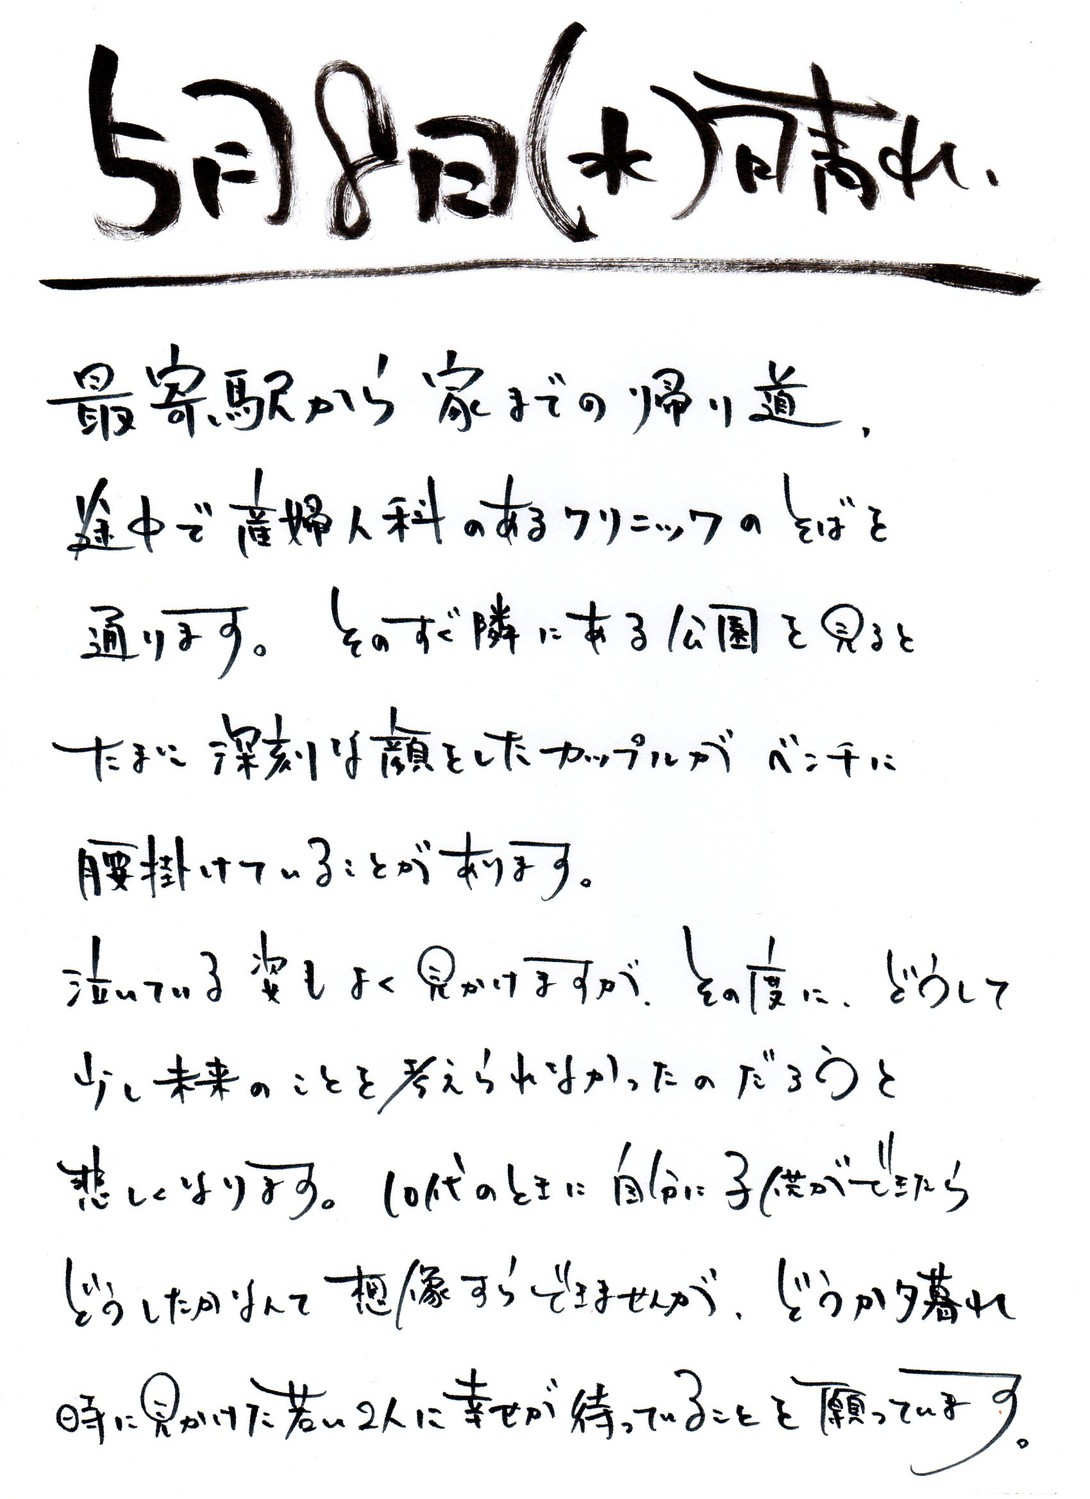 5月8日(水)晴れ、
最寄駅から家までの帰り道、
途中で産婦人科のあるクリニックのそばを
通ります。そのすぐ隣にある公園を見ると
たまに深刻な顔をしたカップルがベンチに
腰掛けていることがあります。
泣いている姿もよく見かけますが、その度に、どうして
少し未来のことを考えられなかったのだろうと
悲しくなります。10代のときに自分に子供ができたら
どうしたかなんて想像すらできませんが、どうか夕暮れ
時に見かけた若い2人に幸せが待っていることを願っています。